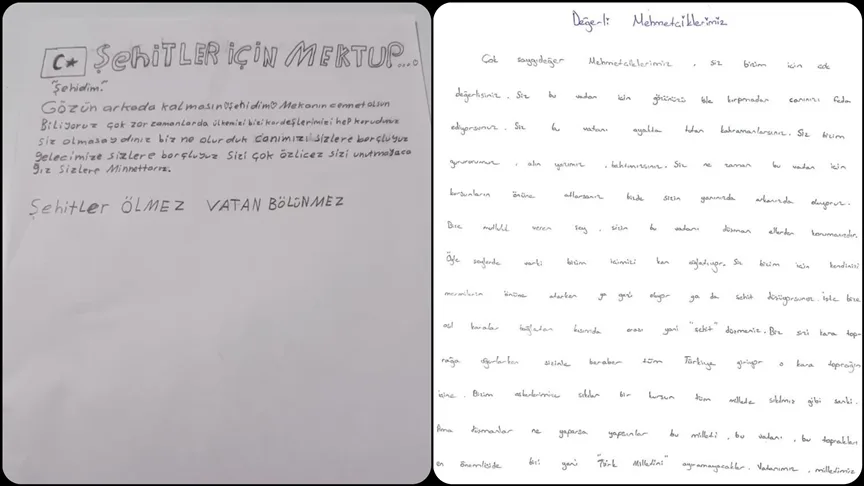 C★ ŞEHİTLER İÇİN MEKTUP...
"Şehidim."
Gözün arkada kalmasın şehidim Mekanın cennet olsun
Biliyoruz çok zor zamanlarda ülkemizi bizi kardeşlerimizi hep korudunuz
siz olmasaydınız biz ne olurduk canımızı sizlere borçluyuz
gelecimize sizlere borçluyuz Sizi çok özlicez sizi unutmayaca
ğız Sizlere Minnettarız.
Şehitler ÖLMEZ VATAN BÖLÜNMEZ
Değerli Mehmetciklerimiz
Çok saygıdeğer Mehmetciklerimiz, siz bizim için çok
değerlisiniz. Siz bu vatan için gözünüzü bile kırpmadan canınızı feda
ediyorsunuz. Siz bu vatanı ayakta tutan kahramanlarsınız. Siz bizim
gururumuz, alın yazımız, Siz ne zaman bu vatan için
kurşunların önüne atlarsanız bizde sizin yanınızda arkanızda oluyoruz.
Bize mutluluk veren şey, sizin bu vatanı düşman ellerden korumanızdır.
Öyle zamanda varki bizim içimizi kan ağlatıyor. Siz bizim için kendinizi
mermilerin önüne atarken ya gazi oluyor ya da şehit düşüyorsunuz. İşte bize
asıl yani "şehit" düşmeniz. Biz sizi kara top-
rağa sizinle beraber tüm Türkiye giriyor o kara toprağın
içine. Bizim askerlerimize sıkılan bir kurşun tüm millete sıkılmış gibi sanki.
Ama düşmanlar ne yaparsa yapsınlar bu milleti, bu vatanı, bu toprakları
en önemliside bizi yani "Türk Milletini" ayıramayacaklar. Vatanımız, milletimiz